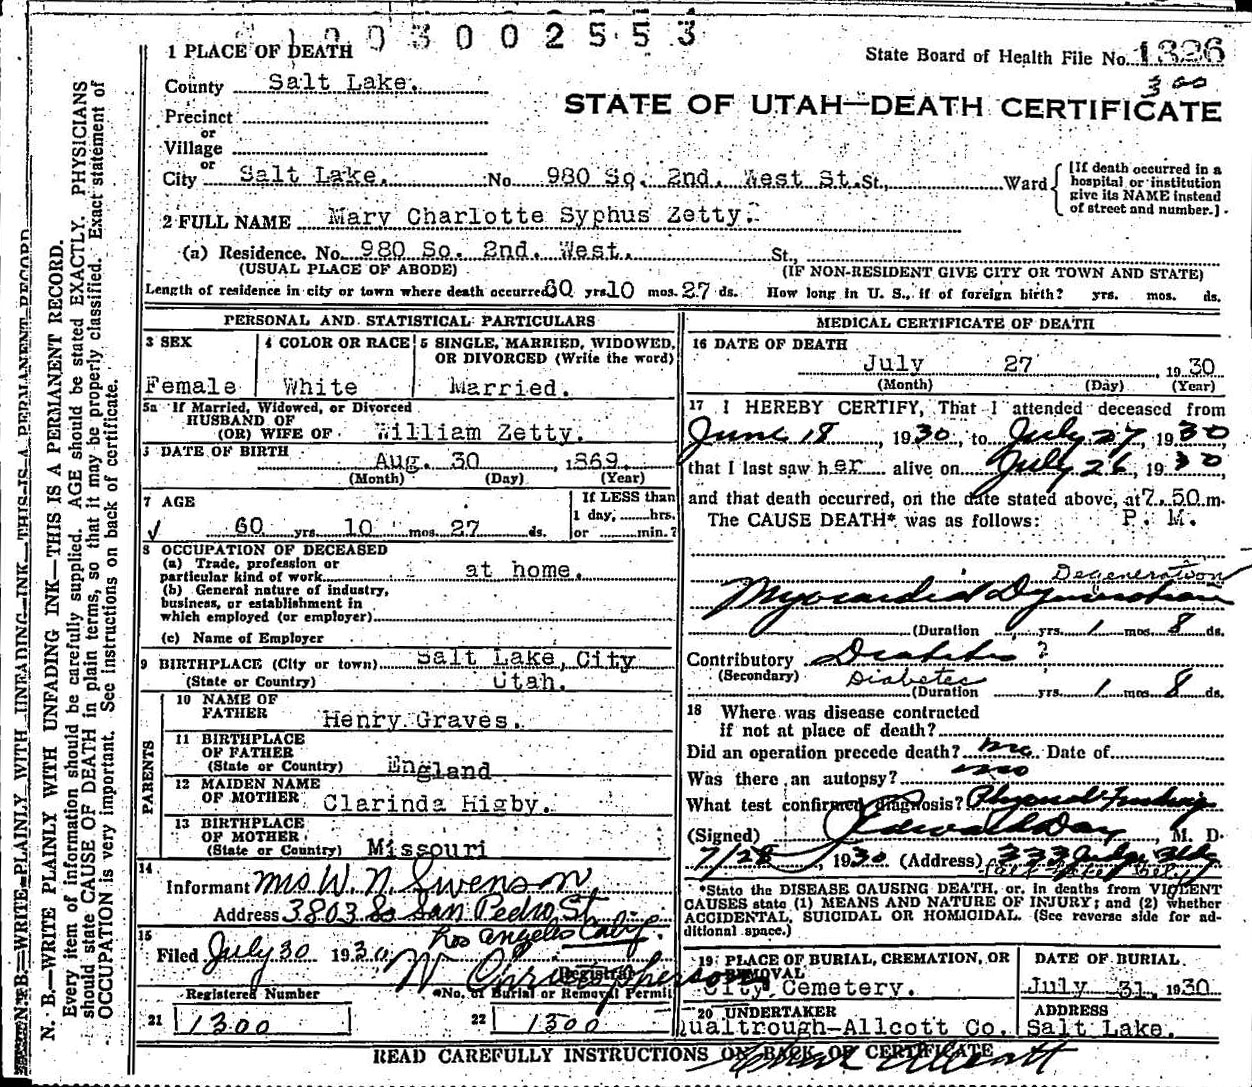 1003002553
State Board of Health File No. 1326
300
1 PLACE OF DEATH
County Salt Lake.
STATE OF UTAH—DEATH CERTIFICATE
Precinct
or
Village
or
City Salt Lake. No 980 So. 2nd. West St. St., Ward
[If death occurred in a hospital or institution give its NAME instead of street and number.]
2 FULL NAME Mary Charlotte Syphus Zetty.
(a) Residence. No. 980 So. 2nd. West. St.,
(USUAL PLACE OF ABODE) (IF NON-RESIDENT GIVE CITY OR TOWN AND STATE)
Length of residence in city or town where death occurred 60 yrs 10 mos. 27 ds. How long in U. S., if of foreign birth? yrs. mos. ds.
PERSONAL AND STATISTICAL PARTICULARS
3 SEX
Female
4 COLOR OR RACE
White
5 SINGLE, MARRIED, WIDOWED, OR DIVORCED (Write the word)
Married.
5a If Married, Widowed, or Divorced
HUSBAND OF
(OR) WIFE OF William Zetty.
DATE OF BIRTH
Aug. 30, 1869.
(Month) (Day) (Year)
7 AGE
60 yrs 10 mos. 27 ds.
If LESS than
1 day, hrs.
or min.?
8 OCCUPATION OF DECEASED
(a) Trade, profession or
particular kind of work at home.
(b) General nature of industry,
business, or establishment in
which employed (or employer)
(c) Name of Employer
9 BIRTHPLACE (City or town) Salt Lake, City
(State or Country) Utah.
PARENTS
10 NAME OF
FATHER Henry Graves.
11 BIRTHPLACE
OF FATHER
(State or Country) England
12 MAIDEN NAME
OF MOTHER Clarinda Higby.
13 BIRTHPLACE
OF MOTHER
(State or Country) Missouri
14
Informant Mrs W. N. Swenson
Address 3803 So San Pedro St
Los Angeles Calif.
15
Filed July 30 1930
W Christopherson
Registrar
Registered Number
21 1300
*No. of Burial or Removal Permit
22 1300
MEDICAL CERTIFICATE OF DEATH
16 DATE OF DEATH
July 27, 1930
(Month) (Day) (Year)
17 I HEREBY CERTIFY, That I attended deceased from
June 18, 1930, to July 27, 1930
that I last saw her alive on July 26, 1930
and that death occurred, on the date stated above, at 7.50 m.
The CAUSE DEATH* was as follows: P. M.
Degeneration
Myocardial
(Duration yrs. 1 mos. 8 ds.
Contributory Diabetes?
(Secondary) Diabetes
(Duration yrs. 1 mos. 8 ds.
18 Where was disease contracted
if not at place of death?
Did an operation precede death? no Date of
Was there an autopsy? no
What test confirmed diagnosis? Physical Findings
(Signed) Edward Day M. D.
7/28, 1930 (Address) 333 Judge Bldg
Salt Lake City
*State the DISEASE CAUSING DEATH, or, in deaths from VIOLENT
CAUSES state (1) MEANS AND NATURE OF INJURY; and (2) whether
ACCIDENTAL, SUICIDAL OR HOMICIDAL. (See reverse side for additional space.)
19 PLACE OF BURIAL, CREMATION, OR REMOVAL
City Cemetery.
DATE OF BURIAL.
July 31, 1930
20 UNDERTAKER
Qualtrough-Allcott Co.
ADDRESS
Salt Lake.
READ CAREFULLY INSTRUCTIONS ON BACK OF CERTIFICATE
N. B.—WRITE PLAINLY WITH UNFADING INK—THIS IS A PERMANENT RECORD
N. B.—WRITE PLAINLY WITH UNFADING INK—THIS IS A PERMANENT RECORD.
Every item of information should be carefully supplied. AGE should be stated EXACTLY. PHYSICIANS
should state CAUSE OF DEATH in plain terms, so that it may be properly classified. Exact statement of
OCCUPATION is very important. See instructions on back of certificate.